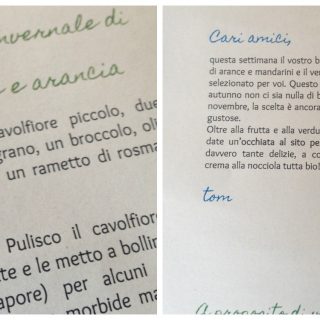 nvernale di
e arancia
avolfiore piccolo, due
grano, un broccolo, oli
un rametto di rosma
Pulisco il cavolfiore
te e le metto a bollir
apore) per alcuni
morbide ma
Cari amici,
questa settimana il vostro b
di arance e mandarini e il ver
selezionato per voi. Questo
autunno non ci sia nulla di b
novembre, la scelta è ancora
gustose.
Oltre alla frutta e alla verdu
date un'occhiata al sito pe
davvero tante delizie, a co
crema alla nocciola tutta bio!
tom
A proposito di v